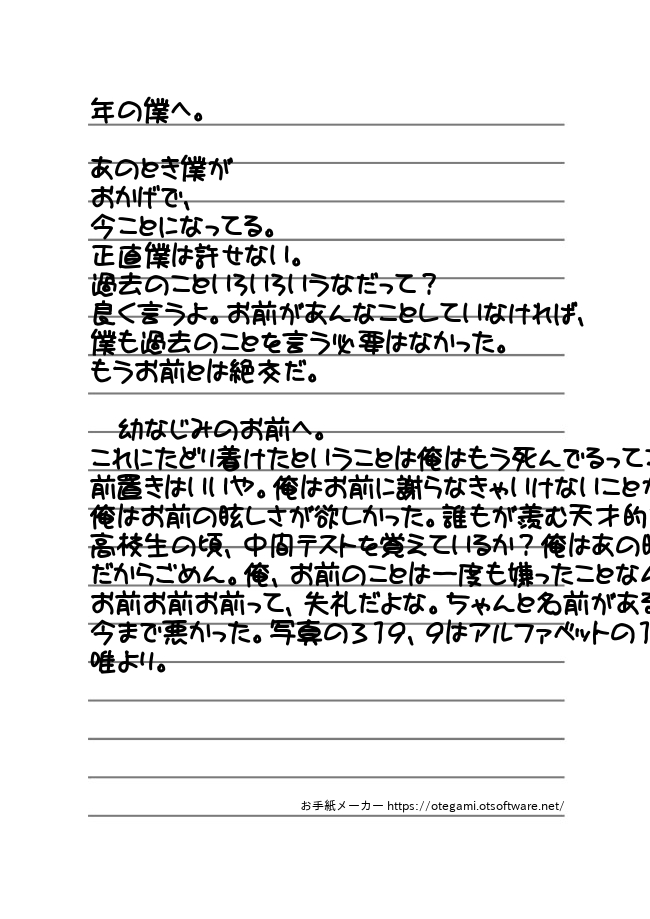 年の僕へ。
あのとき僕が
おかげで、
今ことになってる。
正直僕は許せない。
過去のこといろいろいうなだって？
良く言うよ。お前があんなことしていなければ、
僕も過去のことを言う必要はなかった。
もうお前とは絶交だ。
幼なじみのお前へ。
これにたどり着けたということは俺はもう死んでるって
前置きはいいや。俺はお前に謝らなきゃいけないことが
俺はお前の眩しさが欲しかった。誰もが羨む天才的
高校生の頃、中間テストを覚えているか？俺はあの
だからごめん。俺、お前のことは一度も嫌ったことなん
お前お前お前って、失礼だよな。ちゃんと名前がある
今まで悪かった。写真の319、9はアルファベットの1
唯より。
お手紙メーカー https://otegami.otsoftware.net/